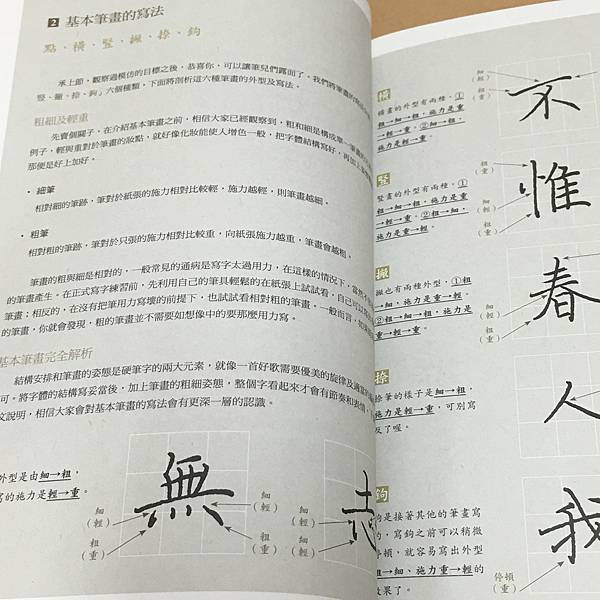 2 基本筆畫的寫法
點、橫、豎、撇、捺、鉤
承上節，觀察過模仿的目標之後，恭喜你，可以讓筆兒們露面了。我們將筆畫的
豎、撇、捺、鉤」六個種類，下面將剖析這六種筆畫的外型及寫法。
粗細及輕重
先賣個關子，在介紹基本筆畫之前，相信大家已經觀察到，粗和細是構成單一筆畫的
例子，輕與重對於筆畫的妝點，就好像化妝能使人增色一般，把字體結構寫好，再加上
那便是好上加好。
• 細筆
相對細的筆跡，筆對於紙張的施力相對比較輕，施力越輕，則筆畫越細。
• 粗筆
相對粗的筆跡，筆對於只張的施力相對比較重，向紙張施力越重，筆畫會越粗。
筆畫的粗與細是相對的，一般常見的通病是寫字太過用力，在這樣的情況下，當然不
的筆畫產生。在正式寫字練習前，先利用自己的筆具輕鬆的在紙張上試試看，自己可以
筆畫；相反的，在沒有把筆用力寫壞的前提下，也試試看相對粗的筆畫。一般而言，如
的筆畫，你就會發現，粗的筆畫並不需要如想像中的要那麼用力寫。
基本筆畫完全解析
結構安排和筆畫的姿態是硬筆字的兩大元素，就像一首好歌需要優美的旋律及適當的
可。將字體的結構寫妥當後，加上筆畫的粗細姿態，整個字看起來才會有節奏和表情，
文說明，相信大家會對基本筆畫的寫法會有更深一層的認識。
外型是由細→粗，
寫的施力是輕→重。
細
（輕）
粗
（重）
無
細
（輕）
粗
（重）
志
橫
橫畫的外型有兩種，①
粗→細→粗，施力是重
→輕→重。②細→粗，
施力是輕→重。
細
（輕）
粗
（重）
不
豎
豎畫的外型有兩種，①
粗→細→粗，施力是重
→輕→重。②粗→細，
施力是重→輕。
粗
（重）
惟
撇
撇也有兩種外型，①粗
→細，施力是重→輕。
②粗→細→粗，施力是
重→輕→重。
細
（輕）
粗
（重）
春
捺
捺筆的樣子是細→粗，
施力是輕→重，可別寫
反了喔。
細
（輕）
粗
（重）
人
鉤
鉤是接著其他的筆畫寫
的，寫鉤之前可以稍微
停頓，就容易寫出外型
粗→細、施力重→輕的
效果了。
停頓
（重）
我